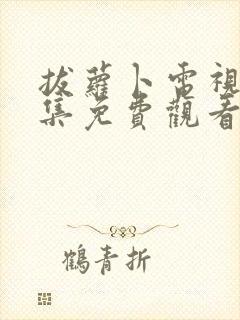 拔蘿卜電視
集免費觀看
鶴青折